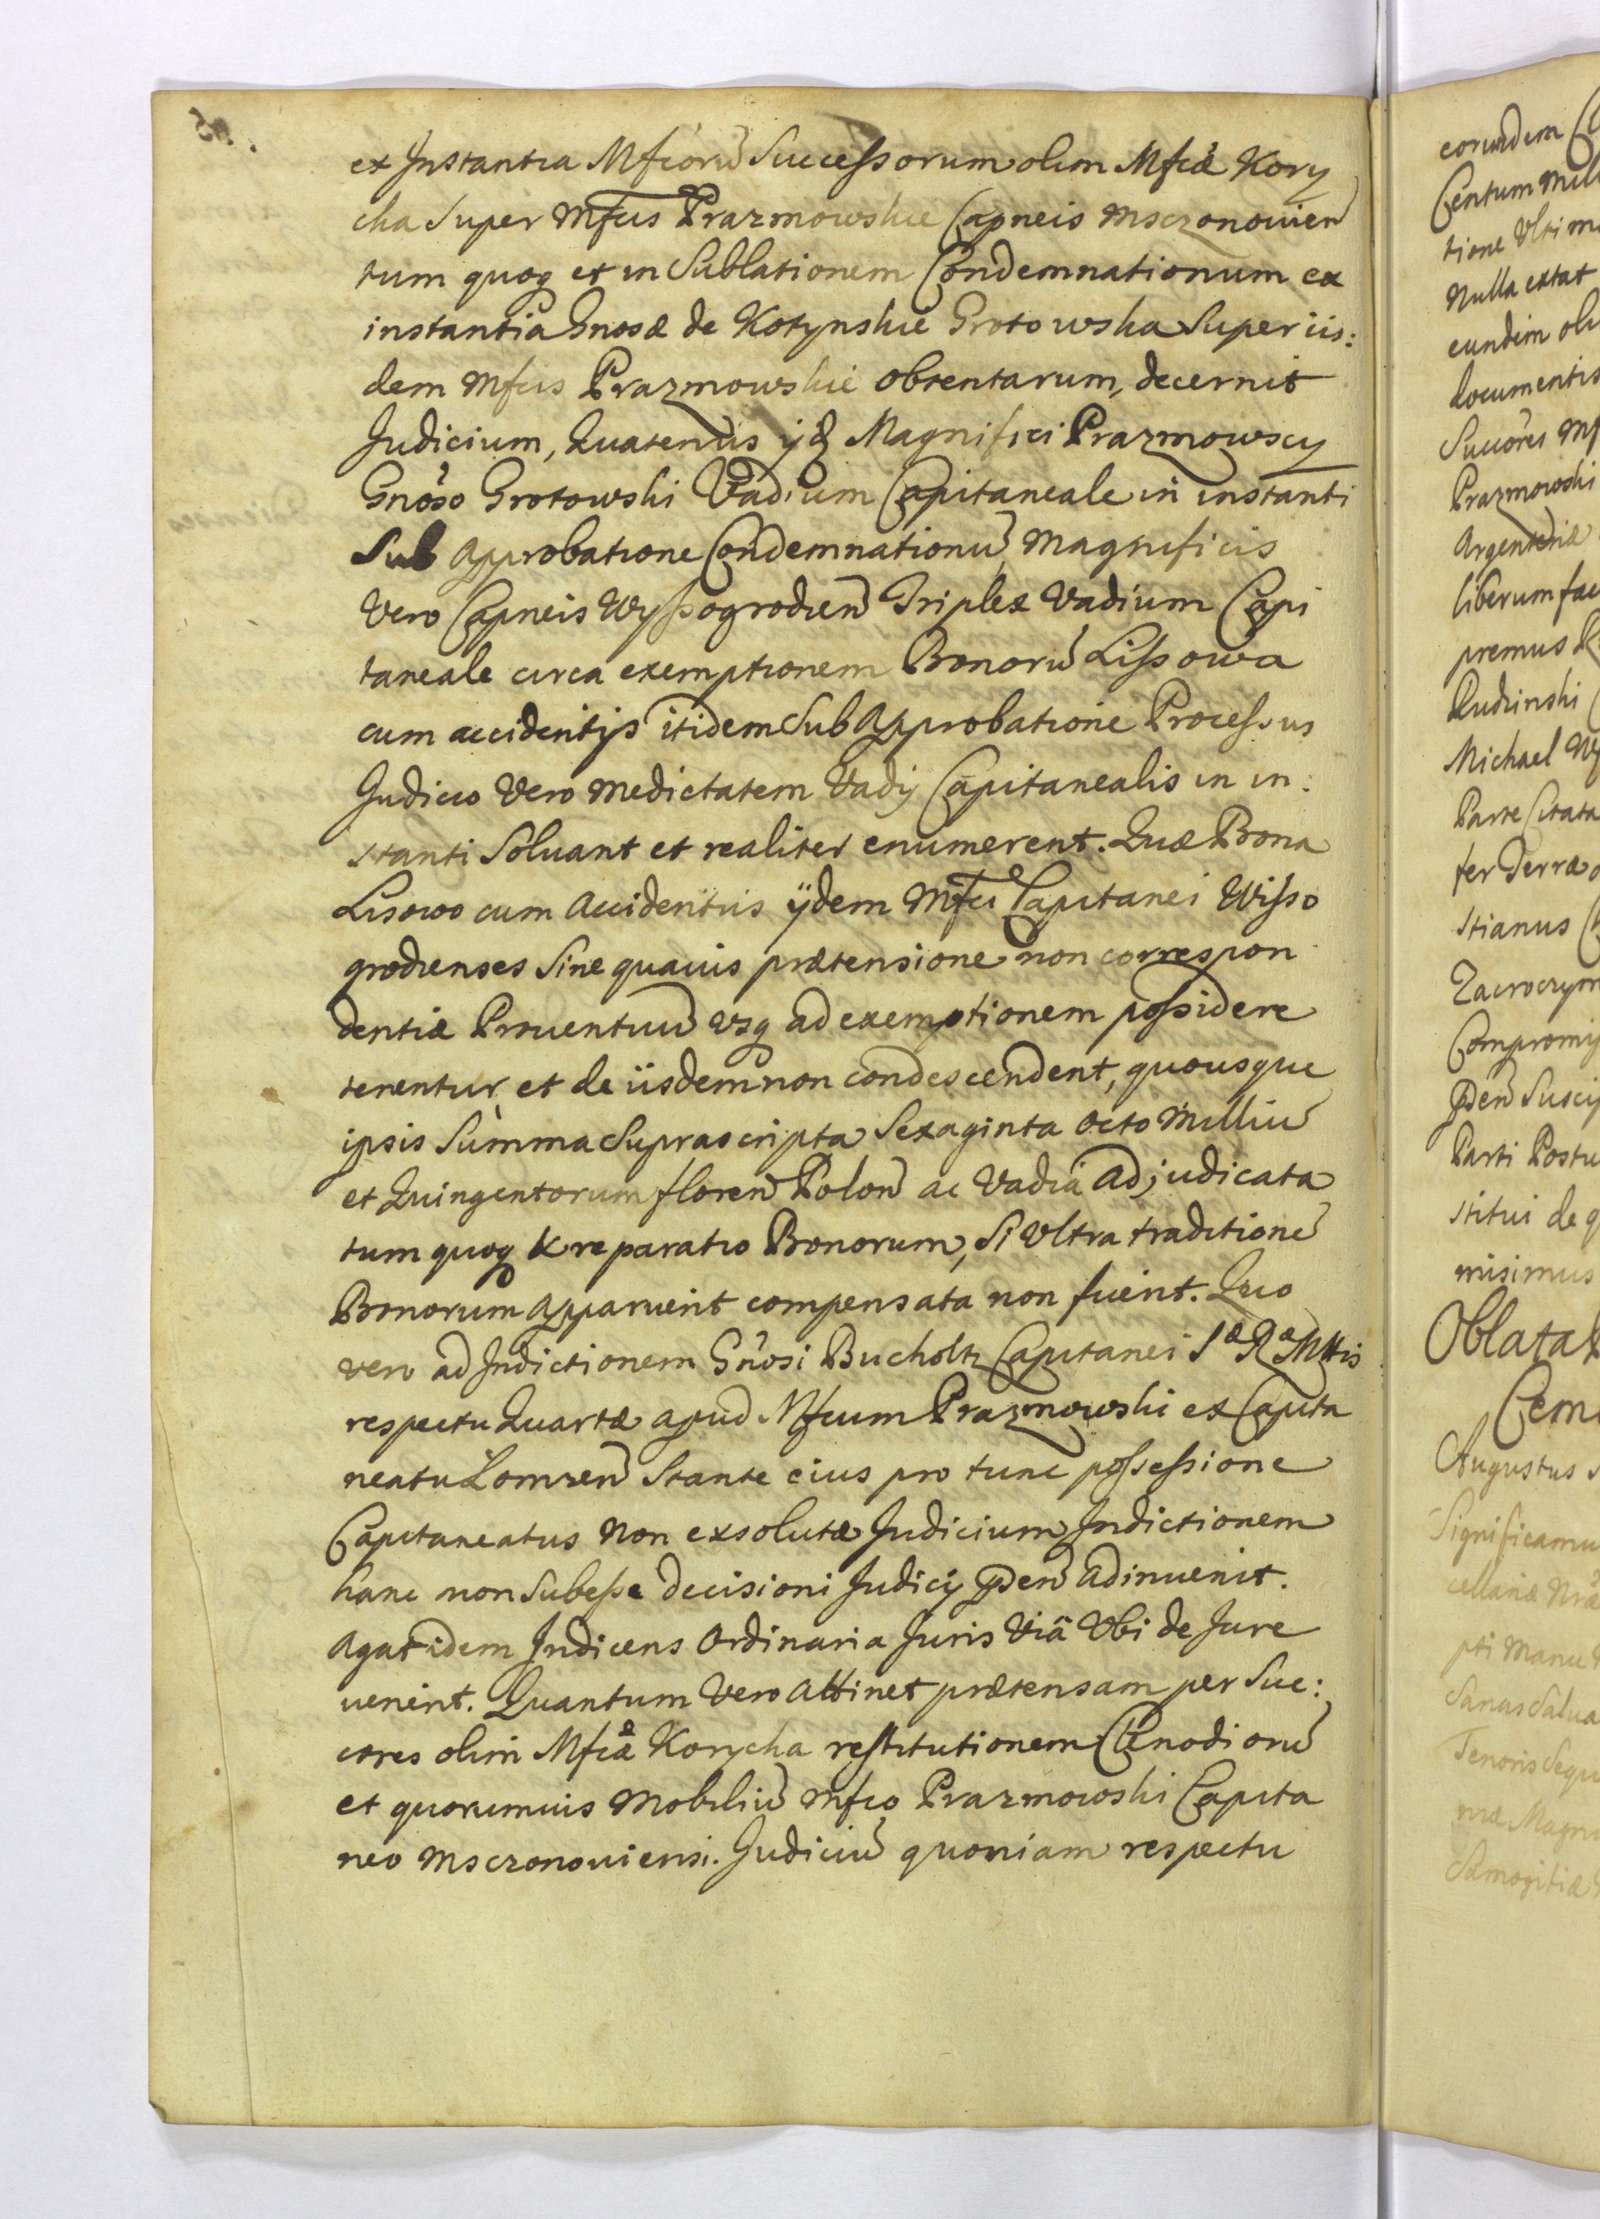 ex Instantia Mfcorũ Successorum olim Mfcæ Kory
cha Super Mfcis Prazmowskie Capneis Msczonouien
tum quoq et in Sublationem Condemnationum ex
instantia Gnosæ de Kotynskie Grotowska Super iis:
dem Mfcis Prazmowskie obtentarum, decernit
Judicium, Quatenus ijd Magnifici Prazmowscy
Gnoso Grotowski Vadium Capitaneale in instanti
Sub Approbatione Condemnationũ, Magnificis
Vero Capneis Wyssogrodien Triplex Vadium Capi
taneale circa exemptionem Bonorũ Lissowa
cum accidentijs itidem Sub Approbatione Processus
Judicio Vero Medietatem Vadij Capitanealis in in:
stanti Soluant et realiter enumerent. Quæ Bona
Lisowo cum Accidentiis ijdem Mfci Capitanei Wisso
grodienses Sine quauis prætensione non correspon
dentiæ Prouentuũ vsq ad exemptionem possidere
tenentur, et de iisdem non condescendent, quousque
ipsis Summa Suprascripta Sexaginta Octo Milliũ
et Quingentorum floren Polon ac Vadia Adjudicata
tum quoq & reparatio Bonorum, Si Vltra traditionẽ
Bonorum Apparuerit compensata non fuerint. Quo
vero ad Indictionem Gnosi Bucholtz Capitanei Sæ Ræ Mttis
respectu Quartæ apud Mfcum Prazmowski ex Capita
neatu Lomzen Stante eius pro tunc possessione
Capitaneatus Non exsolutæ Judicium Indictionem
hanc non Subesse decisioni Judicij pden Adinuenit.
Agat idem Indicens Ordinaria Juris Viâ Vbi de Jure
uenerit. Quantum Vero Attinet prætensam per Suc:
cores olim Mfcæ Korycha restitutionem Clenodiorũ
et quorumuis Mobiliũ Mfco Prazmowski Capita
neo Msczonouiensi. Judiciũ quoniam respectu
eorundem
Centum Mill
tione Vltim
Nulla extat
eundem oli
documentis
Succores Mf
Prazmowski
Argenteriæ
liberum fac
premus
Rudzinski
Michael
Parte Citata
ter Terræ
stianus
Zacroczym
Compromis
pden Suscip
Parti Postu
stitui de q
misimus
Oblata
Cemi
Augustus
Significamu
cellariæ Nræ
pti Manu
Sanas Salua
Tenoris Sequ
niæ Magn
Samogitiæ